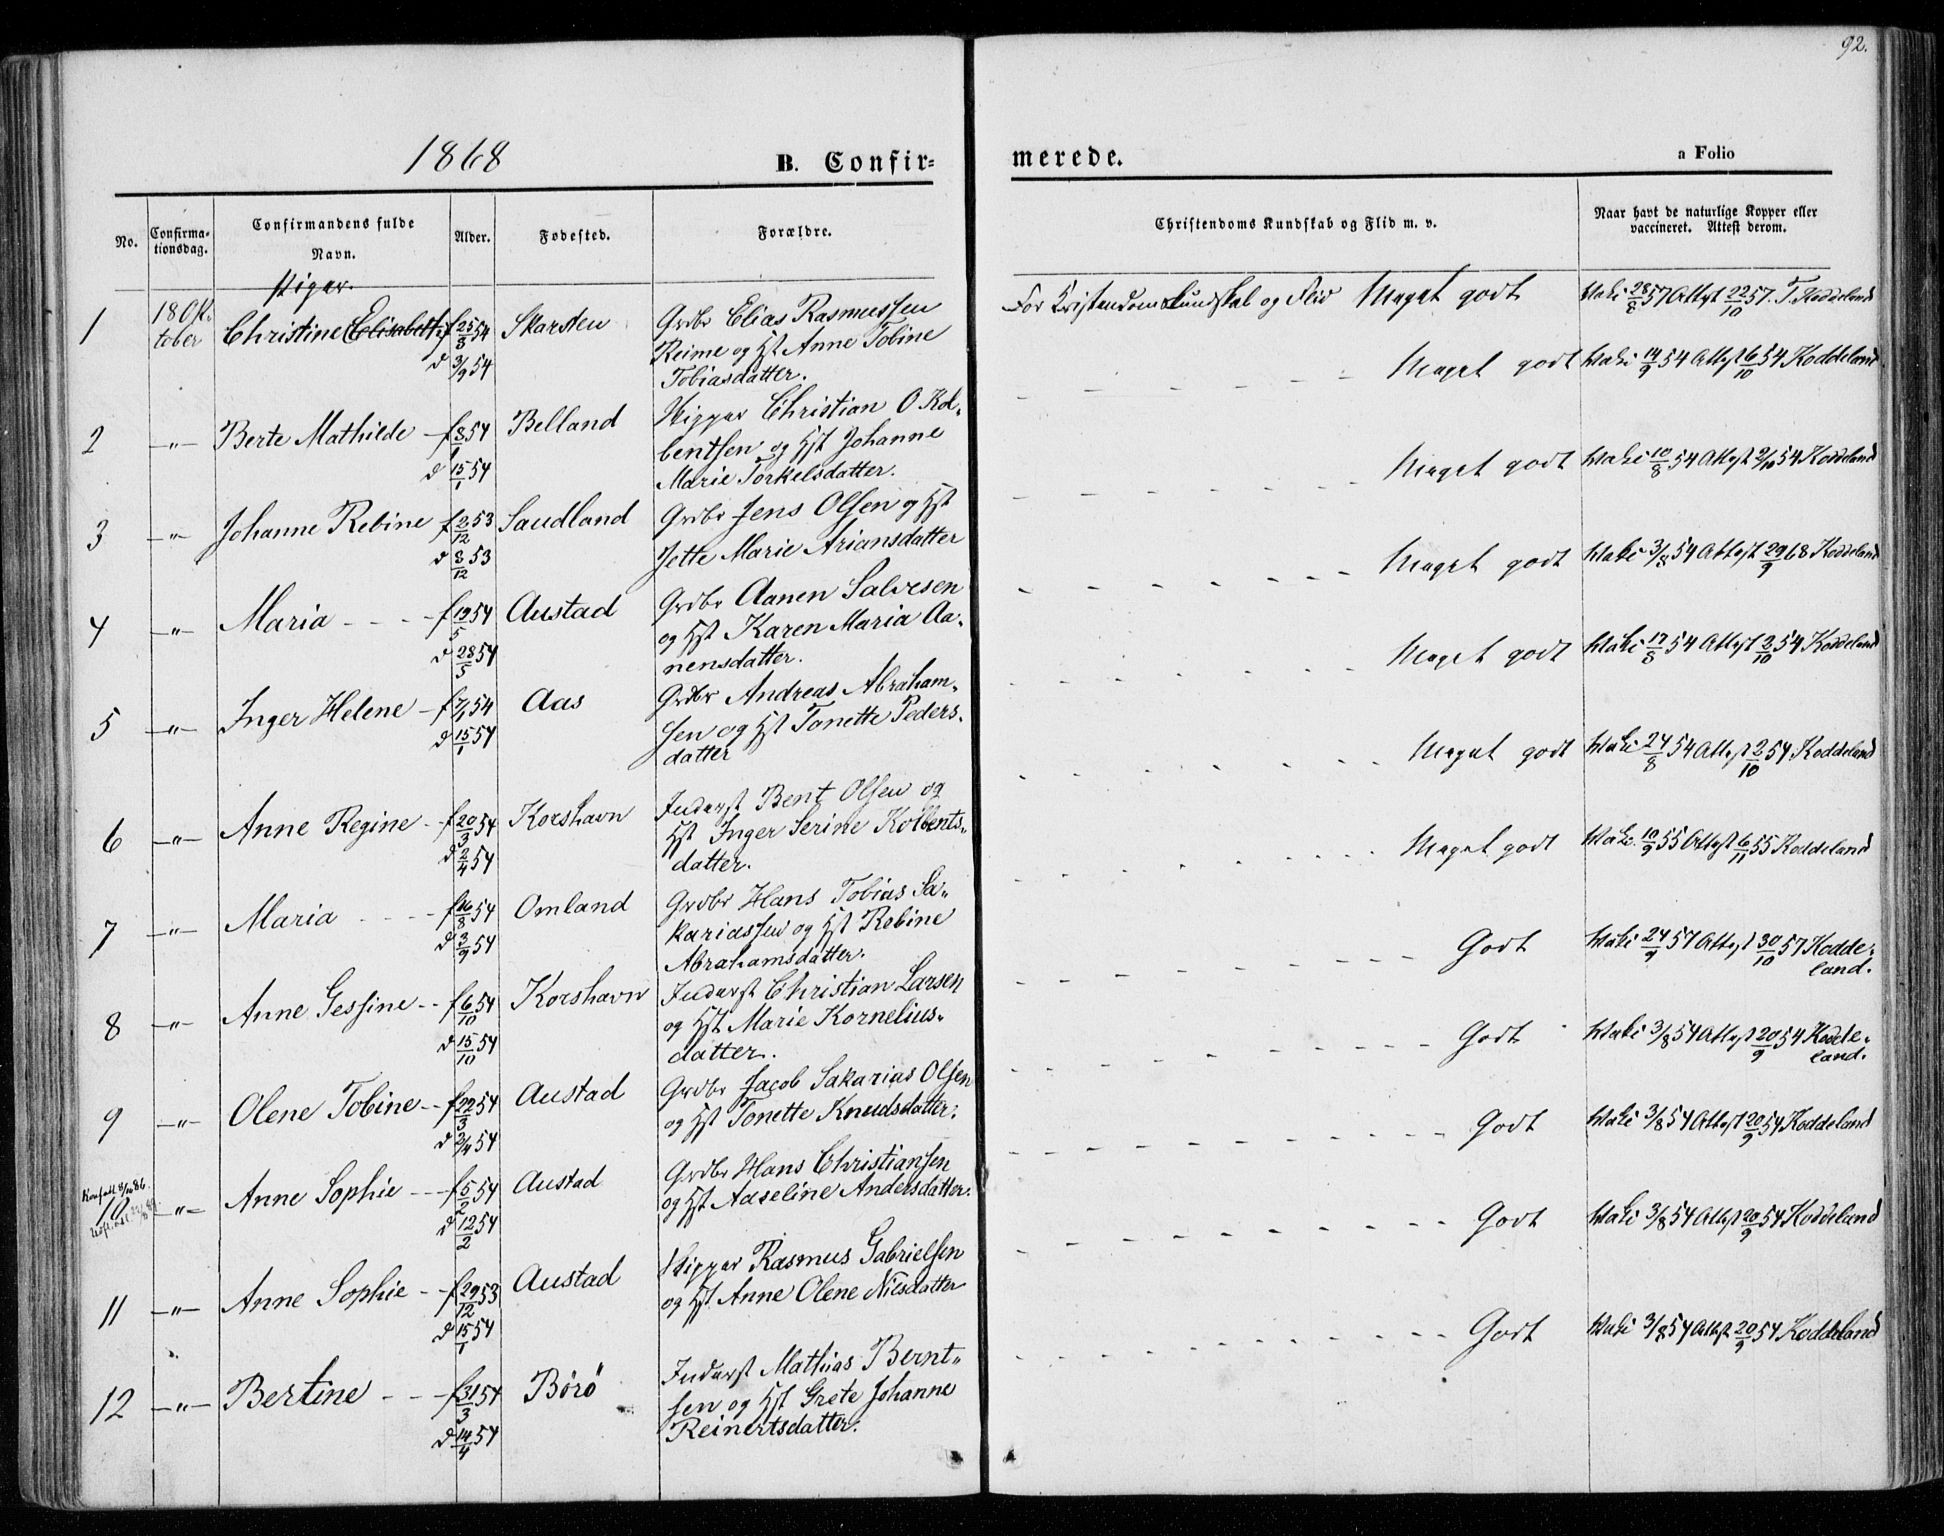 92.
1868
B. Confir=
merede.
a Folio
No.
Confirma-
tionsdag.
Confirmandens fulde
Navn.
Alder.
Fødested.
Forældre.
Christendoms Kundskab og Flid m. v.
Naar havt de naturlige Kopper eller
vaccineret. Attest derom.
Piger.
1 18 Ok-
tober Christine Elisabeth f 25/8 54 Skarsten Grdbr Elias Rasmussen
d 3/9 54 Reime og Hst Anne Tobine
Tobiasdatter.
For Kristendomskundskab og Flid Meget godt Vaki 28/8 57 Attest 22/10 57. T. Koddeland
2 -"- Berte Mathilde f 8/1 54 Belland Skipper Christian O Kol-
d 15/1 54 bentsen og Hst Johanne
Marie Torkelsdatter.
Meget godt Vaki 14/9 54 Attest 6/10 54 Koddeland
3 -"- Johanne Rebine f 2/12 53 Saudland Grdbr Jens Olsen og Hst
d 8/12 53 Jette Marie Ariansdatter
Meget godt Vaki 10/8 54 Attest 2/10 54 Koddeland
4 -"- Maria f 19/5 54 Austad Grdbr Aanen Salvesen
d 28/5 54 og Hst Karen Maria Aa-
nensdatter.
Meget godt Vaki 3/8 54 Attest 29/9 68 Koddeland
5 -"- Inger Helene f 7/1 54 Aas Grdbr Andreas Abraham-
d 15/1 54 sen og Hst Tonette Peders-
datter
Meget godt Vaki 17/8 54 Attest 2/10 54 Koddeland
6 -"- Anne Regine f 20/3 54 Korshavn Inderst Bent Olsen og
d 2/4 54 Hst Inger Serine Kolbents-
datter.
Meget godt Vaki 24/8 54 Attest 2/10 54 Koddeland
7 -"- Maria f 16/8 54 Omland Grdbr Hans Tobias Sa-
d 3/9 54 kariassen og Hst Rebine
Abrahamsdatter.
Meget godt Vaki 10/9 55 Attest 6/11 55 Koddeland
8 -"- Anne Gessine f 6/10 54 Korshavn Inderst Christian Larsen
d 15/10 54 og Hst Marie Kornelius-
datter.
Godt Vaki 24/9 57 Attest 30/10 57 Kodde-
land.
9 -"- Olene Tobine f 22/3 54 Austad Grdbr Jacob Sakarias Olsen
d 2/4 54 og Hst Tonette Knudsdatter.
Godt Vaki 3/8 54 Attest 20/9 54 Kodde-
land.
10 -"- Anne Sophie f 5/2 54 Austad Grdbr Hans Christiansen
d 12/2 54 og Hst Aaseline Andersdatter.
Godt Vaki 3/8 54 Attest 20/9 54 Koddeland
11 -"- Anne Sophie f 29/12 53 Austad Skipper Rasmus Gabrielsen
d 15/1 54 og Hst Anne Olene Nilsdatter
Godt Vaki 3/8 54 Attest 20/9 54 Koddeland
12 -"- Bertine f 31/3 54 Börö Inderst Mathias Bernt-
d 14/4 54 sen og Hst Grete Johanne
Reinertsdatter.
Godt Vaki 3/8 54 Attest 20/9 54 Koddeland